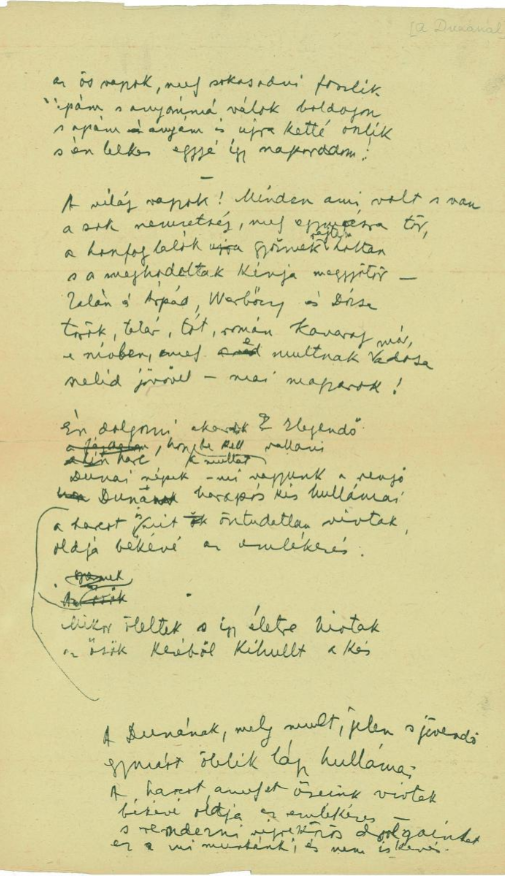 [A Dunánál
az ős vagyok, mely sokasodni foszlik
apám s anyámmá válok boldogon
s apám s anyám is újra ketté oszlik
s én lelkes eggyé így szaporodom!
—
A világ vagyok! Minden ami volt s van
a sok nemzetség, mely egymásra tör,
a honfoglalók győznek velem holtan
s a meghódoltak kínja meggyötör —
Zalán s Árpád, Werbőczy és Dózsa
török, tatár, tót, román kavarog már,
e szívben, mely multnak adósa
szelid jövővel — mai magyarok!
Én dolgozni akarok? Elegendő
harc, hogy be kell vallani
a multat
Dunai népek — mi vagyunk a
Dunának habzás kis hullámai
a harcot őseink öntudatlan vívtak,
oldja békévé az emlékezés.
Az ősök
Mikor öleltek s így életre hívtak
az ősök kezéből kihullt a kés
A Dunának, mely mult, jelen s jövendő
egymást ölelik lágy hullámai
A harcot amelyet őseink vívtak
békévé oldja az emlékezés
s rendezni végre közös dolgainkat
ez a mi munkánk; és nem is kevés.